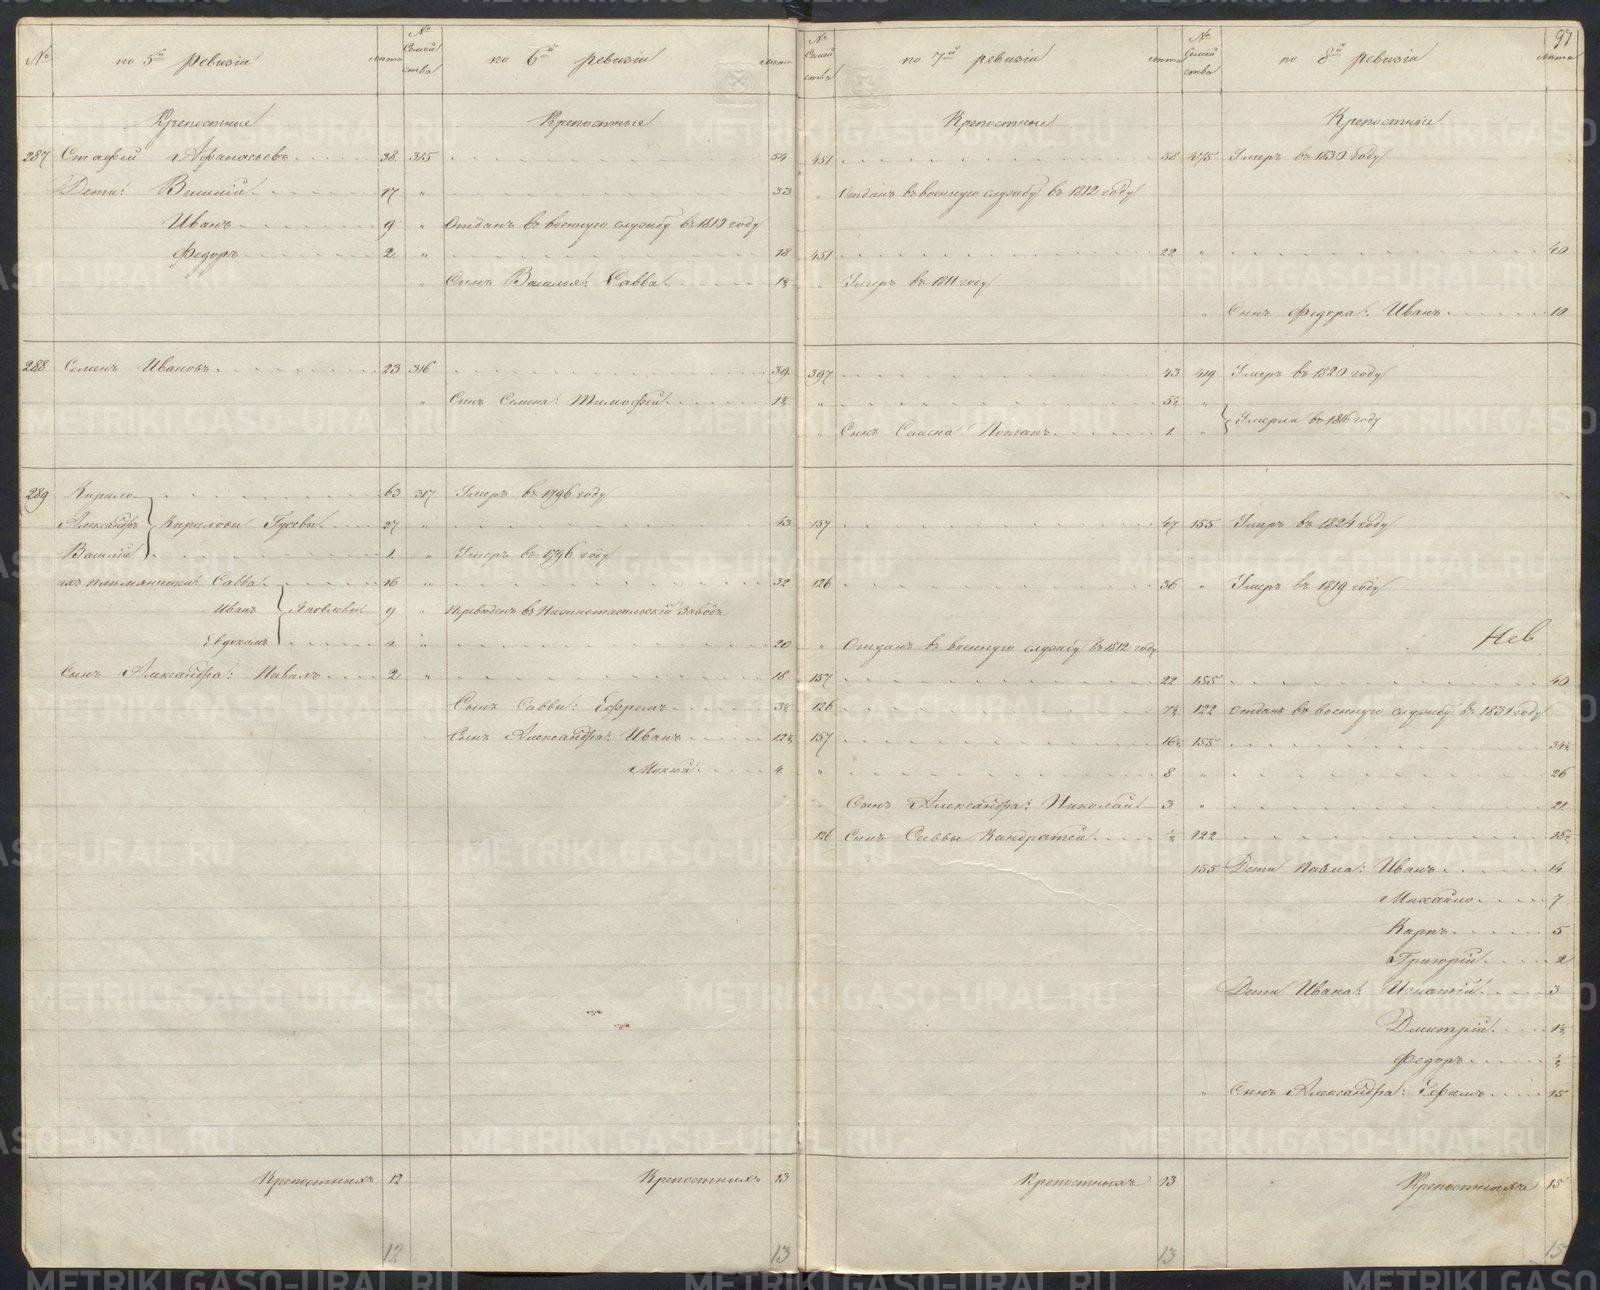 97
№ по 5й ревизіи лѣта № Семейства по 6й ревизіи лѣта № Семейства по 7й ревизіи лѣта № Семейства по 8й ревизіи лѣта
Крепостные Крепостные Крепостные Крепостныи
287 Стафей Афанасьевъ 38 315 54 451 58 475 Умеръ въ 1830 году
Дети: Василій 17 " 33 " Отданъ въ военную службу въ 1812 году
Иванъ 9 " Отданъ въ военную службу въ 1810 году
Федоръ 2 " 18 451 22 " 40
" Сынъ Василья: Савва 1½ " Умеръ въ 1811 году
" Сынъ Федора: Иванъ 10
288 Семенъ Ивановъ 23 316 39 397 43 419 Умеръ въ 1820 году
" Сынъ Семена: Тимофей 1½ " 5½ "
" Сынъ Семена Потапъ 1 " Умерли въ 1816 году
289 Кирило 63 317 Умеръ въ 1796 году
Александръ Кириловы Гусевы 27 " 43 157 47 155 Умеръ въ 1824 году
Василій 1 " Умеръ въ 1796 году
ихъ племянники: Савва 16 " 32 126 36 " Умеръ въ 1819 году
Иванъ Яковлевы 9 " Переведенъ въ Нижнетагильскій Заводъ
Евдокимъ 4 " 20 " Отданъ въ военную службу въ 1812 году Нев
Сынъ Александра: Павелъ 2 " 18 157 22 155 40
Сынъ Саввы: Ефремъ 3½ 126 7½ 122 отданъ въ военную службу въ 1831 году
Сынъ Александра: Иванъ 12½ 157 16½ 155 34½
Мокій 4 " 8 " 26
Сынъ Александра: Николай 3 " 21
126 Сынъ Саввы Кандратей ½ 122 18½
155 Дети Павла: Иванъ 14
Михайло 7
Карпъ 5
Григорій 2
Дети Ивана: Игнатій 3
Дмитрій 1½
Федоръ ½
" Сынъ Александра: Ефимъ 15
Крепостныхъ 12 Крепостныхъ 13 Крепостныхъ 13 Крепостныхъ 15
12 13 13 15
METRIKI.GASO-URAL.RU